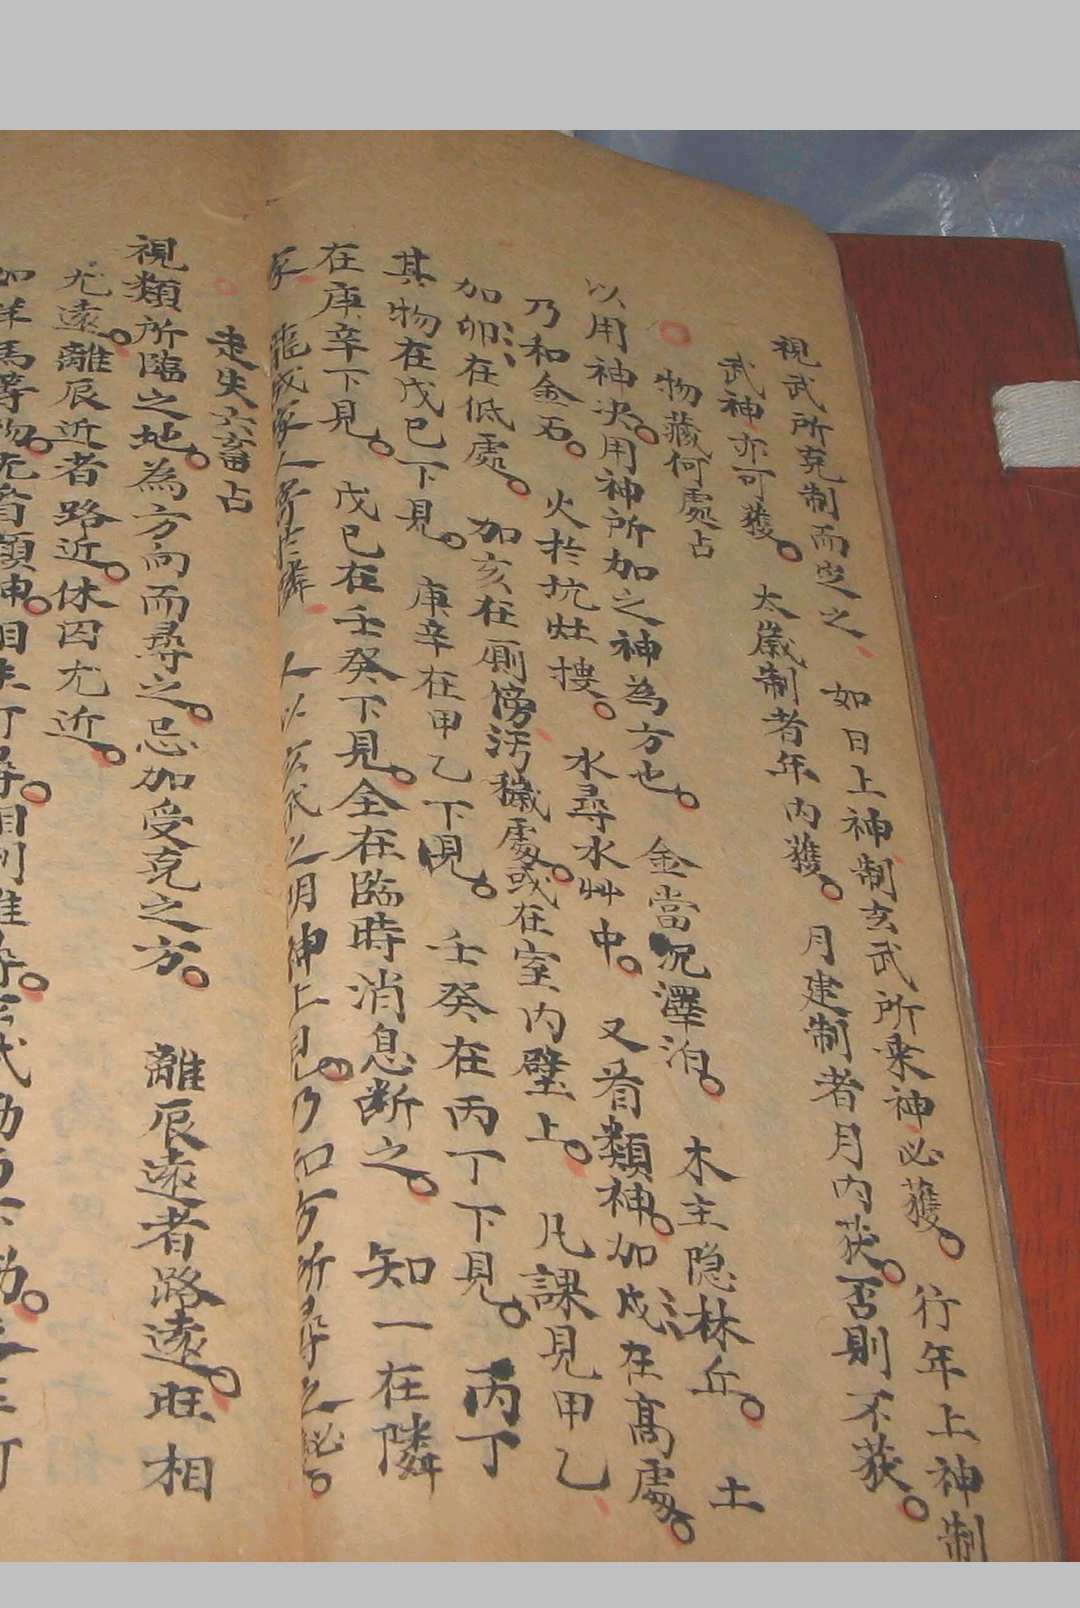 視武所克制而定之、如日上神制玄武所乘神必獲。行年上神制
武神亦可獲。太歲制者年内獲。月建制者月内获。否則不获。
物藏何處占
以用神决。用神所加之神為方也。金當沉澤泊。木主隐林丘。土
乃和金石。火於坑灶摟。水尋水艸中。又看類神。加戌在高處。
加卯在低處。加亥在厠傍汚穢處。或在室内壁上。凡課見甲乙
其物在戊巳下見。庚辛在甲乙下見。壬癸在丙丁下見。丙丁
在庚辛下見。戊巳在壬癸下見全在臨時消息断之。知一在隣
人以玄武之明神上見。乃知方所尋之必。
走失六畜占
視類所臨之地。為方向而尋之。忌加受克之方。離辰遠者路遠。旺相
尤遠。離辰近者路近。休囚尤近。